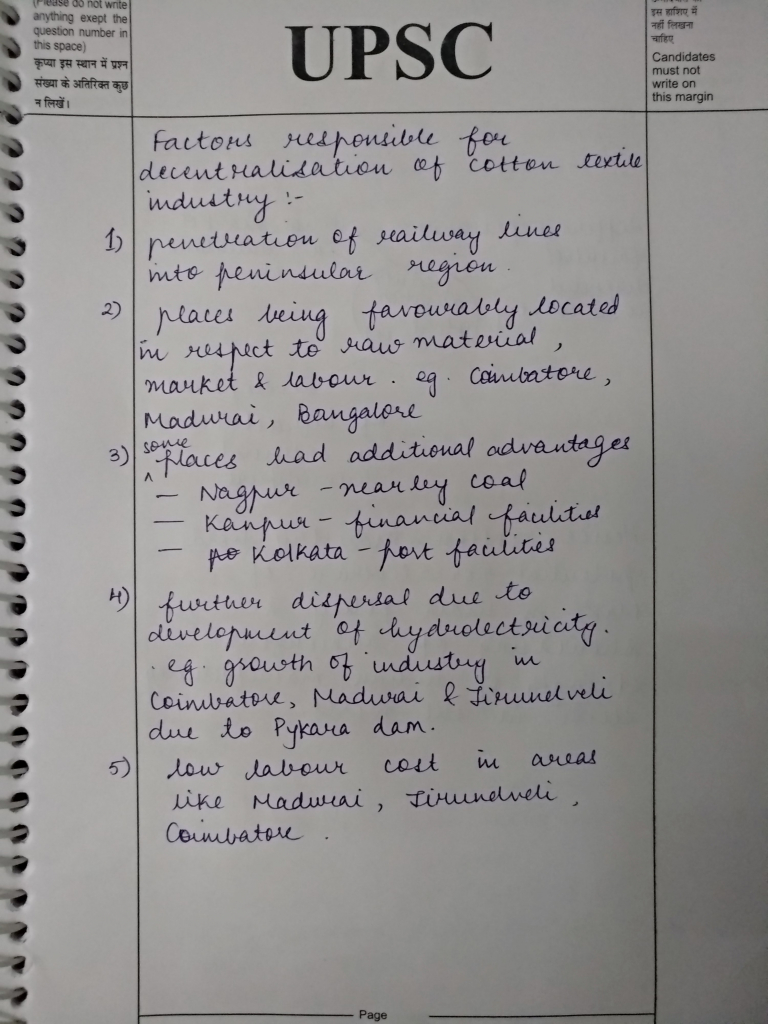 (Please do not write
anything exept the
question number in
this space)
कृप्या इस स्थान में प्रश्न
संख्या के अतिरिक्त कुछ
न लिखें।
UPSC
इस हाशिए में
नहीं लिखना
चाहिए
Candidates
must not
write on
this margin
Factors responsible for
decentralisation of cotton textile
industry :-
1) penetration of railway lines
into peninsular region.
2) places being favourably located
in respect to raw material,
market & labour. eg. Coimbatore,
Madurai, Bangalore
3) some places had additional advantages
— Nagpur - nearby coal
— Kanpur - financial facilities
— Kolkata - port facilities
4) further dispersal due to
development of hydrolectricity.
eg. growth of industry in
Coimbatore, Madurai & Tirundveli
due to Pykara dam.
5) low labour cost in areas
like Madurai, Tirundveli,
Coimbatore.
Page